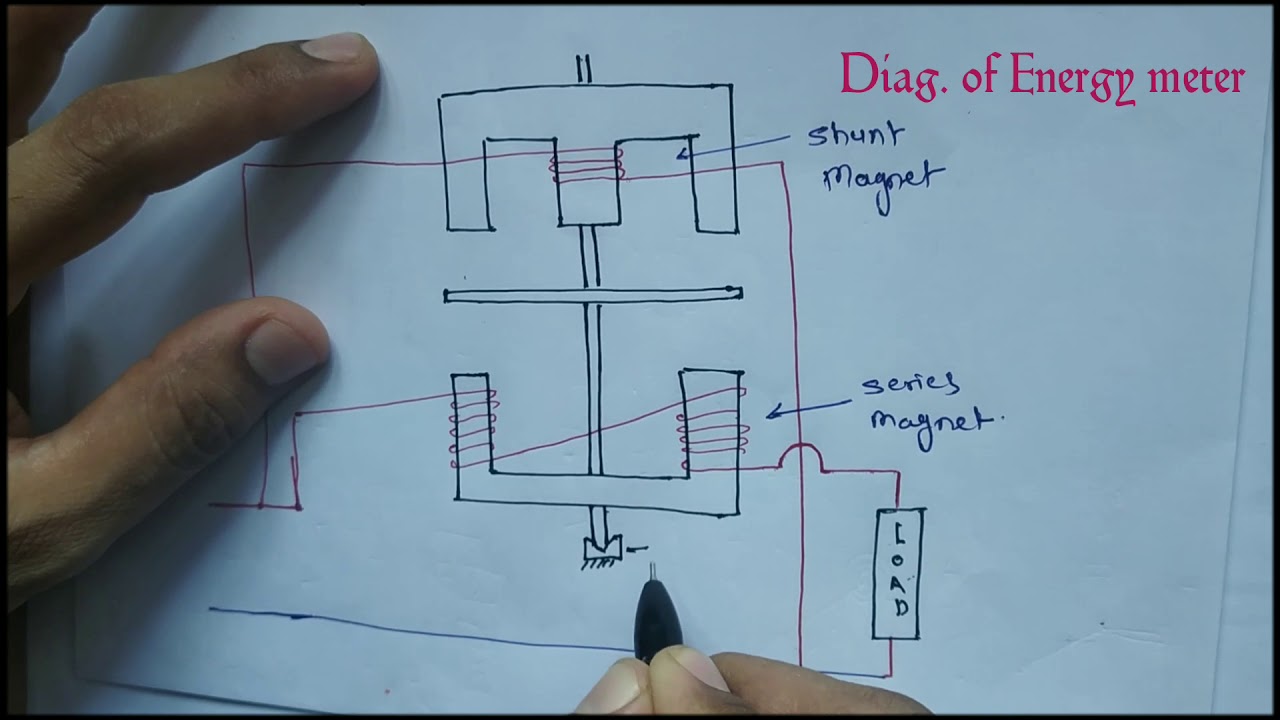 Diag. of Energy meter
Shunt
Magnet
series
magnet.
LOAD